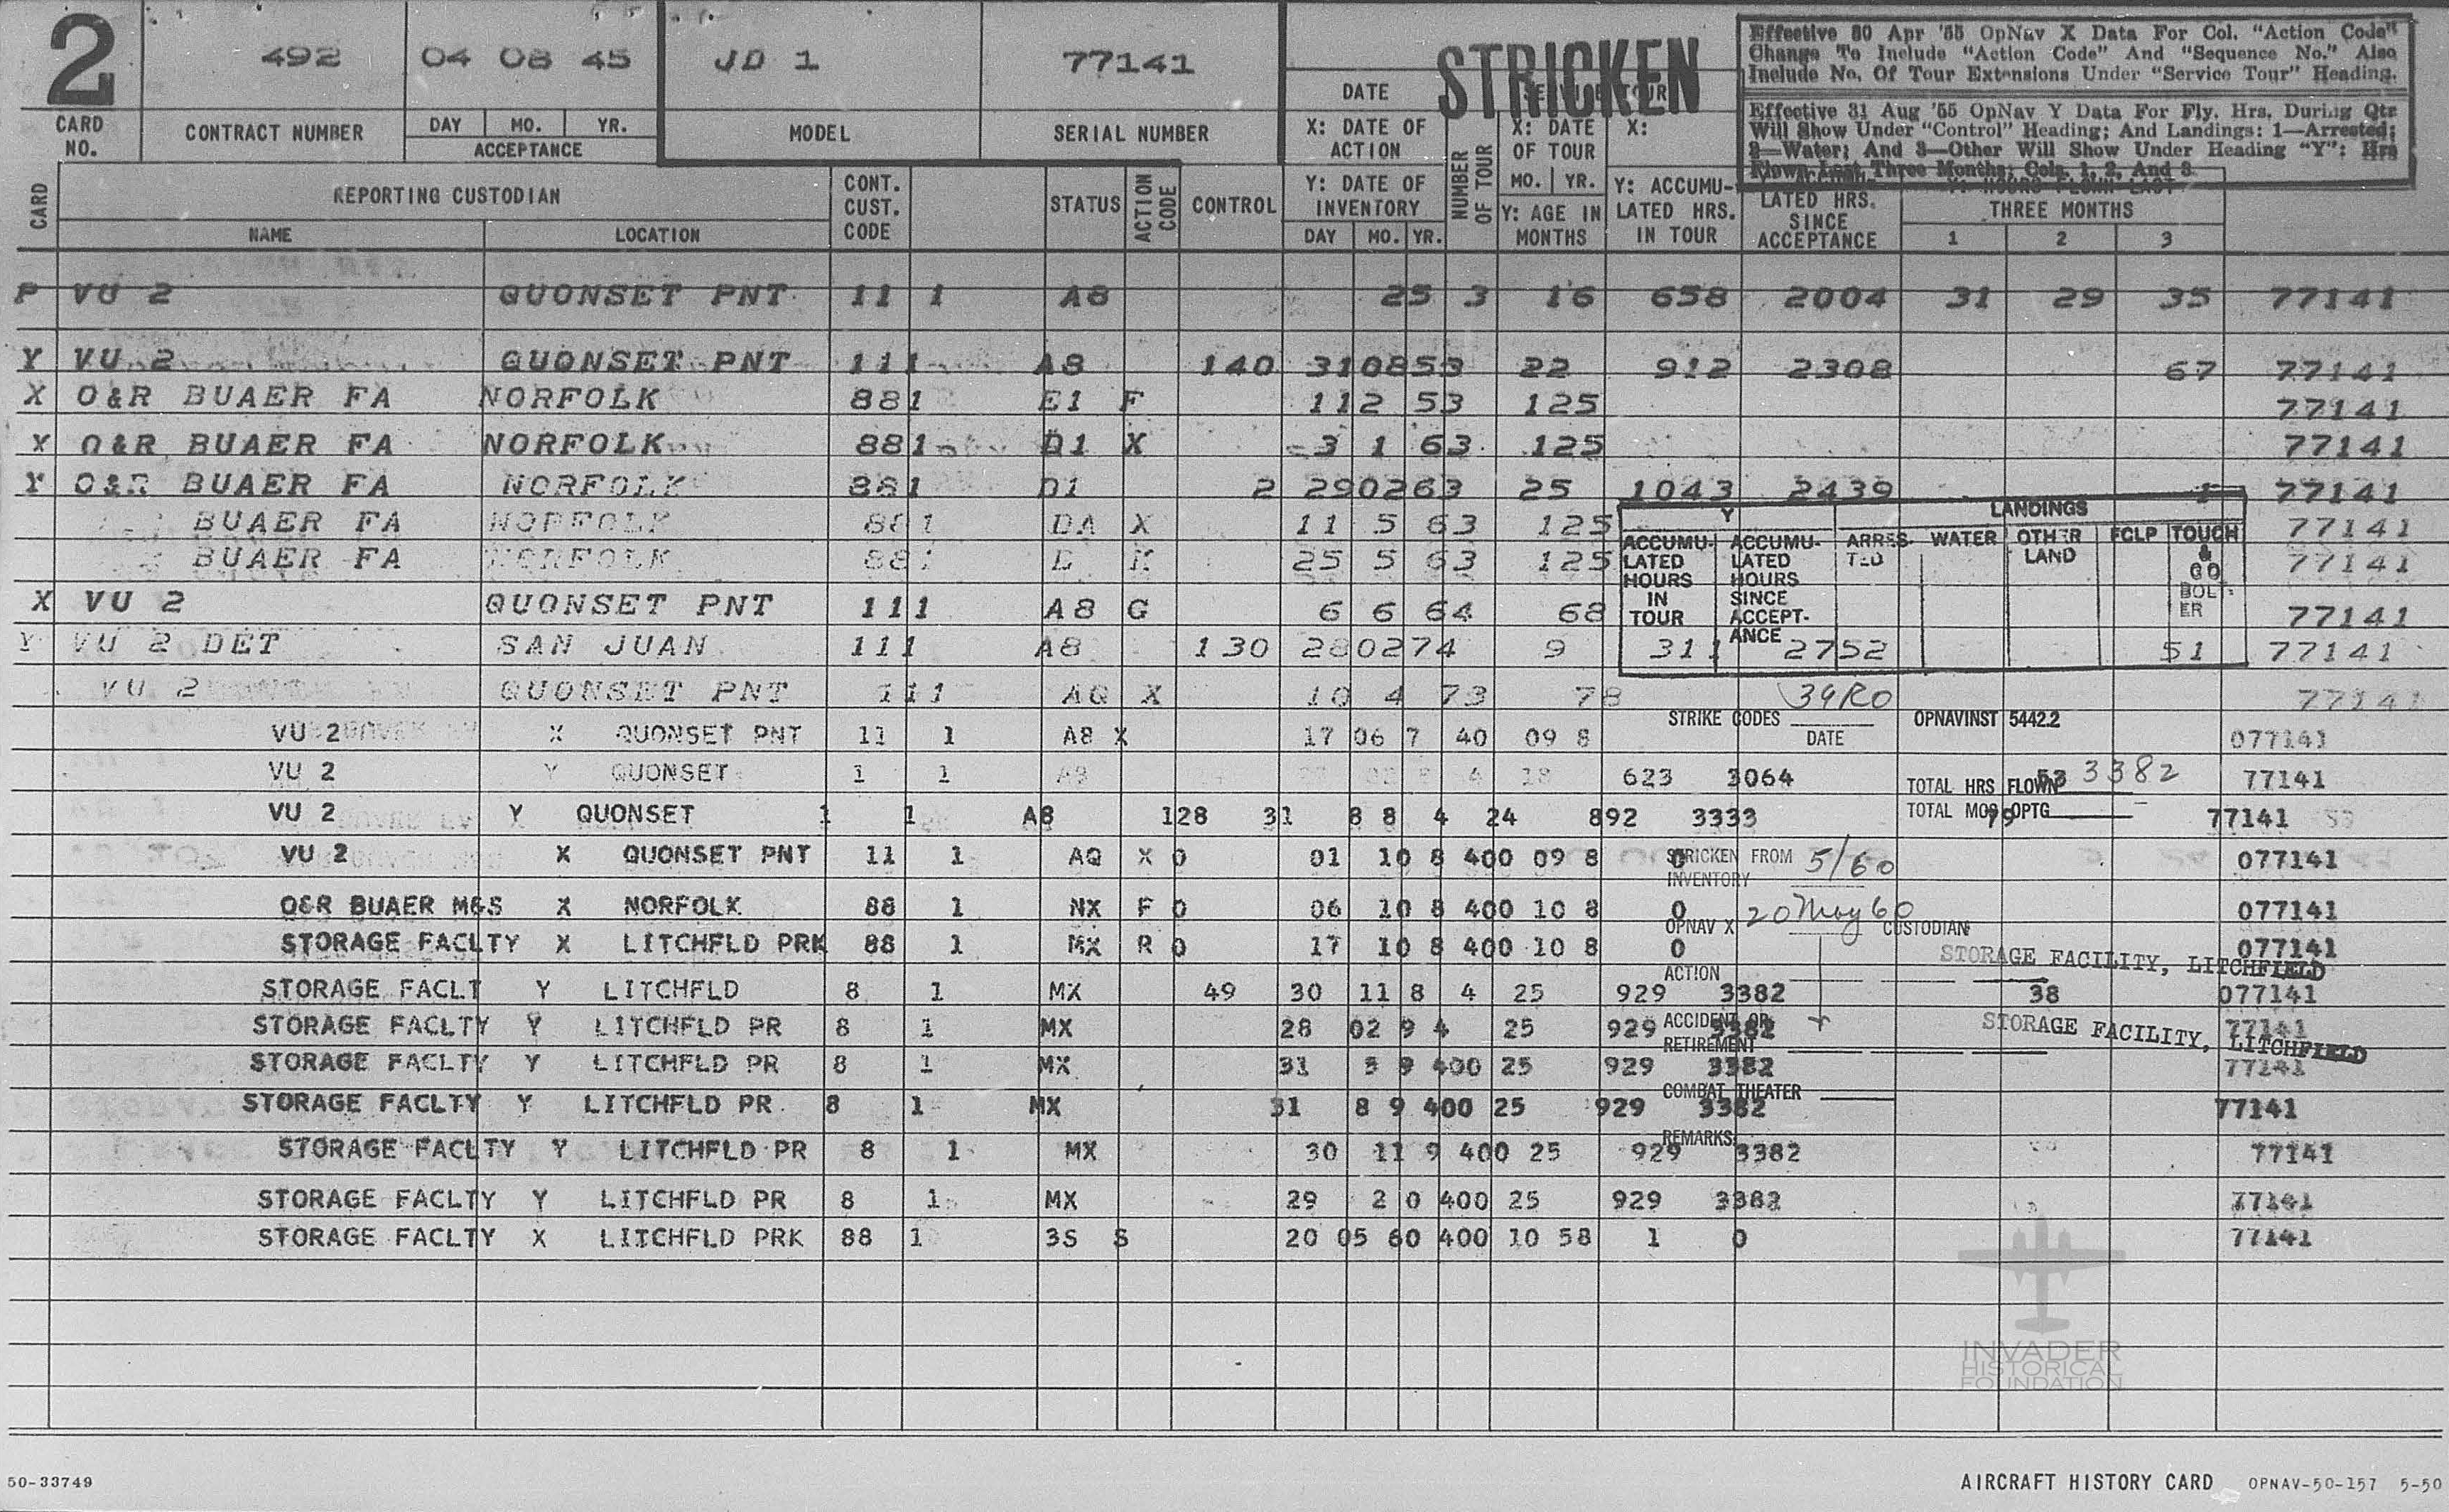 2
492 04 08 45 JD 1 77141
STRICKEN
Effective 30 Apr '55 OpNav X Data For Col. "Action Code"
Change To Include "Action Code" And "Sequence No." Also
Include No. Of Tour Extensions Under "Service Tour" Heading.
Effective 31 Aug '55 OpNav Y Data For Fly. Hrs. During Qtr
Will Show Under "Control" Heading; And Landings: 1—Arrested;
2—Water; And 3—Other Will Show Under Heading "Y": Hrs
Flown Last Three Months; Cols. 1, 2, And 3.
CARD NO.
CONTRACT NUMBER
DAY MO. YR.
ACCEPTANCE
MODEL
SERIAL NUMBER
DATE
X: DATE OF ACTION
Y: DATE OF INVENTORY
DAY MO. YR.
NUMBER OF TOUR
SERVICE TOUR
X: DATE OF TOUR
MO. YR.
Y: AGE IN MONTHS
X:
Y: ACCUMULATED HRS. IN TOUR
LATED HRS. SINCE ACCEPTANCE
Y: HOURS FLOWN LAST
THREE MONTHS
1 2 3
CARD
REPORTING CUSTODIAN
NAME LOCATION
CONT. CUST. CODE
STATUS
ACTION CODE
CONTROL
P VU 2 QUONSET PNT 11 1 A8 25 3 16 658 2004 31 29 35 77141
Y VU 2 QUONSET PNT 111 A8 140 310853 22 912 2308 67 77141
X O&R BUAER FA NORFOLK 881 E1 F 112 53 125 77141
X O&R BUAER FA NORFOLK 881 D1 X 3 1 63 125 77141
Y O&R BUAER FA NORFOLK 881 D1 2 290263 25 1043 2439 77141
BUAER FA NORFOLK 881 DA X 11 5 63 125 77141
BUAER FA NORFOLK 88 25 5 63 125 77141
X VU 2 QUONSET PNT 111 A8 G 6 6 64 68 77141
Y VU 2 DET SAN JUAN 111 A8 130 280274 9 311 2752 51 77141
Y
ACCUMULATED HOURS IN TOUR
ACCUMULATED HOURS SINCE ACCEPTANCE
LANDINGS
ARRESTED WATER OTHER LAND FCLP TOUCH & GO BOLTER
VU 2 QUONSET PNT 111 AQ X 10 4 73 78 77141
39RO
STRIKE CODES OPNAVINST 5442.2
DATE
VU 2 X QUONSET PNT 11 1 A8 X 17 06 7 40 09 8 077141
VU 2 Y QUONSET 1 1 A8 4 18 623 3064 53 77141
TOTAL HRS FLOWN 3382
VU 2 Y QUONSET 1 1 A8 128 31 8 8 4 24 892 3333 79 77141
TOTAL MOS OPTG
VU 2 X QUONSET PNT 11 1 AQ X 0 01 10 8 400 09 8 0 077141
STRICKEN FROM INVENTORY 5/60
O&R BUAER M&S X NORFOLK 88 1 NX F 0 06 10 8 400 10 8 0 077141
OPNAV X 20 May 60 CUSTODIAN
STORAGE FACLTY X LITCHFLD PRK 88 1 MX R 0 17 10 8 400 10 8 0 077141
STORAGE FACILITY, LITCHFIELD
ACTION
STORAGE FACLT Y LITCHFLD 8 1 MX 49 30 11 8 4 25 929 3382 38 077141
STORAGE FACLTY Y LITCHFLD PR 8 1 MX 28 02 9 4 25 929 3382 77141
ACCIDENT OR RETIREMENT
STORAGE FACILITY, LITCHFIELD
STORAGE FACLTY Y LITCHFLD PR 8 1 MX 31 5 9 400 25 929 3382 77141
COMBAT THEATER
STORAGE FACLTY Y LITCHFLD PR 8 1 MX 31 8 9 400 25 929 3382 77141
REMARKS
STORAGE FACLTY Y LITCHFLD PR 8 1 MX 30 11 9 400 25 929 3382 77141
STORAGE FACLTY Y LITCHFLD PR 8 1 MX 29 2 0 400 25 929 3382 77141
STORAGE FACLTY X LITCHFLD PRK 88 1 3S S 20 05 60 400 10 58 1 0 77141
INVADER
HISTORICAL
FOUNDATION
50-33749
AIRCRAFT HISTORY CARD OPNAV-50-157 5-50